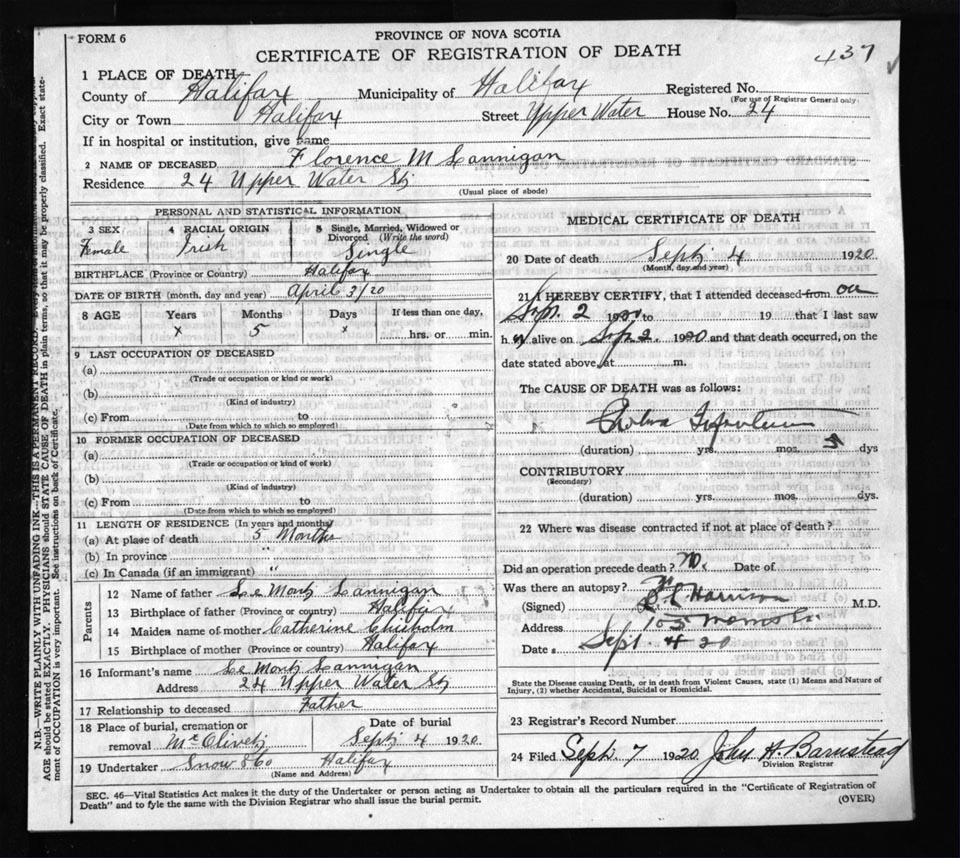 FORM 6
PROVINCE OF NOVA SCOTIA
CERTIFICATE OF REGISTRATION OF DEATH
437
1 PLACE OF DEATH
County of Halifax Municipality of Halifax Registered No.
(For use of Registrar General only)
City or Town Halifax Street Upper Water House No. 24
If in hospital or institution, give name
2 NAME OF DECEASED Florence M Lannigan
Residence 24 Upper Water St
(Usual place of abode)
PERSONAL AND STATISTICAL INFORMATION
3 SEX 4 RACIAL ORIGIN 5 Single, Married, Widowed or Divorced (Write the word)
Female Irish Single
BIRTHPLACE (Province or Country) Halifax
DATE OF BIRTH (month, day and year) April 3/20
8 AGE Years Months Days If less than one day,
x 5 x hrs. or min.
9 LAST OCCUPATION OF DECEASED
(a)
(Trade or occupation or kind or work)
(b)
(Kind of industry)
(c) From to
(Date from which to which so employed)
10 FORMER OCCUPATION OF DECEASED
(a)
(Trade or occupation or kind of work)
(b)
(Kind of industry)
(c) From to
(Date from which to which so employed)
11 LENGTH OF RESIDENCE (In years and months)
(a) At place of death 5 Months
(b) In province "
(c) In Canada (if an immigrant) "
Parents
12 Name of father Le Monty Lannigan
13 Birthplace of father (Province or country) Halifax
14 Maiden name of mother Catherine Chisholm
15 Birthplace of mother (Province or country) Halifax
16 Informant's name Le Monty Lannigan
Address 24 Upper Water St
17 Relationship to deceased Father
18 Place of burial, cremation or removal Mt Olivet
Date of burial Sept 4 1920
19 Undertaker Snow & Co Halifax
(Name and Address)
MEDICAL CERTIFICATE OF DEATH
20 Date of death Sept 4 1920
(Month, day and year)
21 I HEREBY CERTIFY, that I attended deceased from on
Sep. 2 1920 to 19 that I last saw
h er alive on Sep 2. 1920 and that death occurred, on the
date stated above, at m.
The CAUSE OF DEATH was as follows:
Cholera Infantum
(duration) yrs. mos. dys
CONTRIBUTORY
(Secondary)
(duration) yrs. mos. dys.
22 Where was disease contracted if not at place of death?
Did an operation precede death? No. Date of
Was there an autopsy? No
(Signed) Harrison M.D.
Address 105
Date Sept 4 20
State the Disease causing Death, or in Death from Violent Causes, state (1) Means and Nature of Injury, (2) whether Accidental, Suicidal or Homicidal.
23 Registrar's Record Number
24 Filed Sept 7 1920 John H. Barnstead
Division Registrar
SEC. 46—Vital Statistics Act makes it the duty of the Undertaker or person acting as Undertaker to obtain all the particulars required in the "Certificate of Registration of
Death" and to fyle the same with the Division Registrar who shall issue the burial permit.
(OVER)
N.B.—WRITE PLAINLY WITH UNFADING INK—THIS IS A PERMANENT RECORD.
AGE should be stated EXACTLY. PHYSICIANS should STATE CAUSE OF DEATH in plain terms, so that it may be properly classified. Exact state-
ment of OCCUPATION is very important. See instructions on back of Certificate.